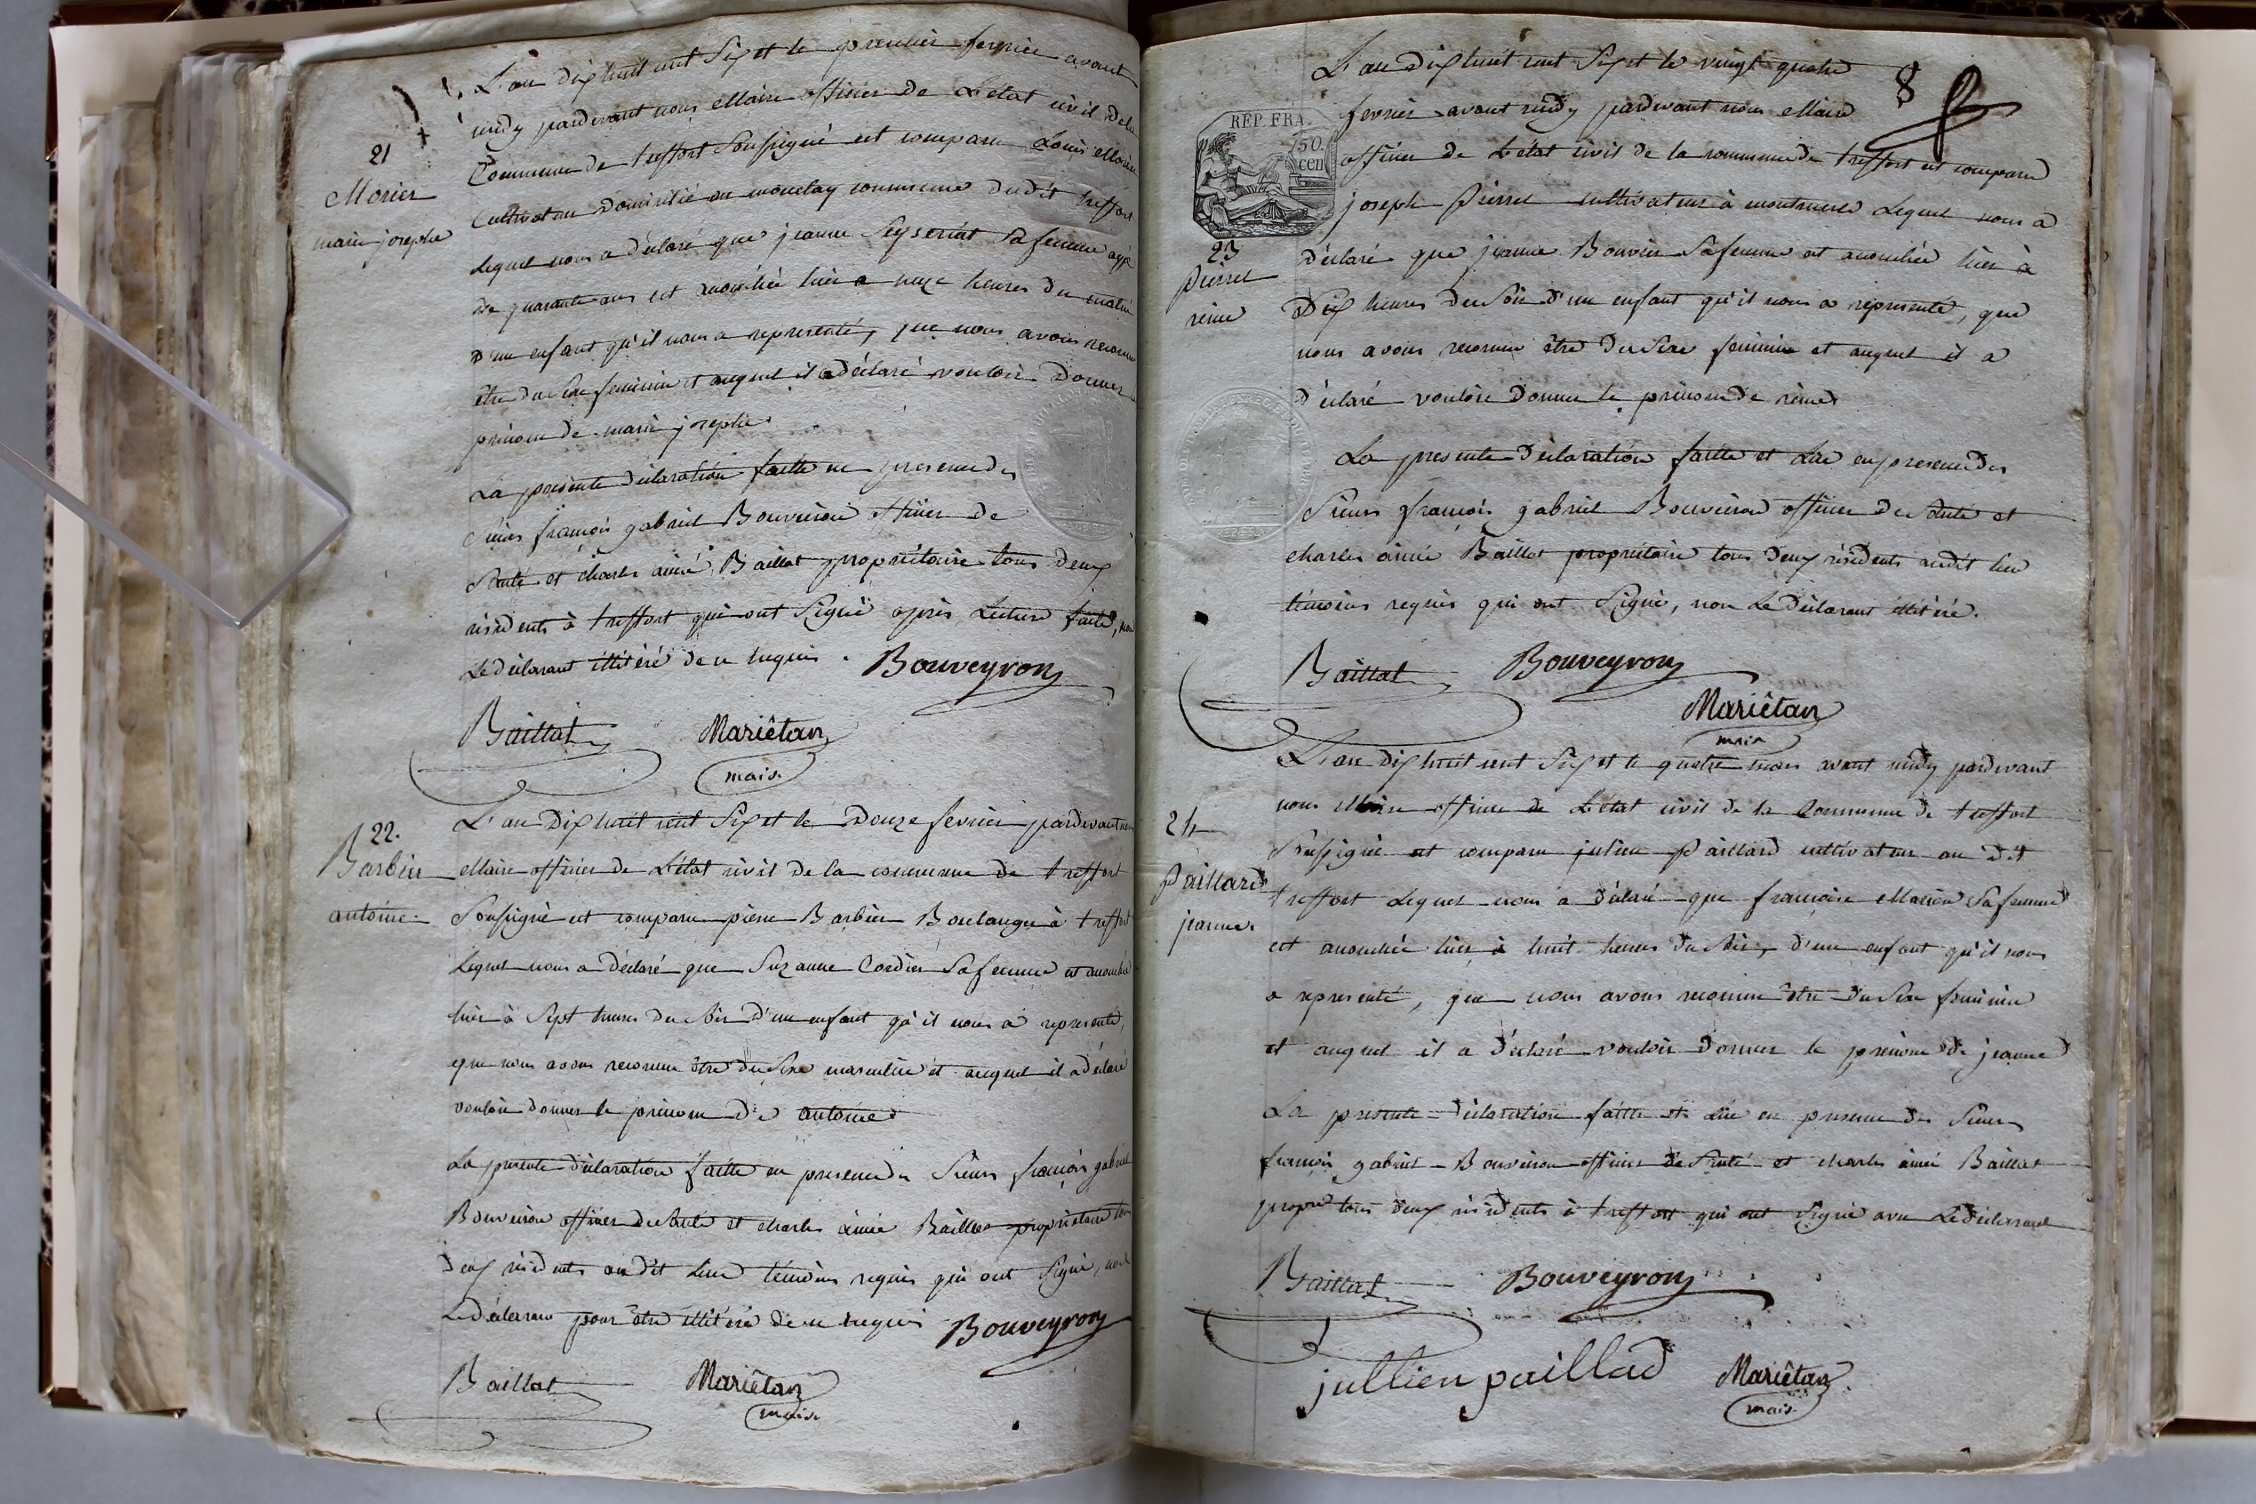 21
Morier
marie josephe
L'an dix huit cent Six et le premier fevrier avant
midy pardevant nous Maire officier de L'etat civil de la
Commune de treffort Soussigné est comparu Louis Morier
Cultivateur domicilié au monetay commune dudit treffort
Lequel nous a déclaré que jeanne Seyseriat Sa femme agé
de quarante ans est accouchée hier a onze heures du matin
d'un enfant qu'il nous a representé, que nous avons reconnu
être du Sexe feminin et auquel il a déclaré vouloir Donner le
prénom de marie josephe
La présente déclaration faitte en presence des
Sieurs françois gabriel Bouveiron officier de
Santé et charles aimé Baillat propriétaire tous deux
résidents à treffort qui ont Signé après Lecture faite, non
Le déclarant illitéré de ce enquis.
Bouveyron
Baillat
Mariêtan
maire
22.
Barbier
antoine
L'an Dix huit cent Six et le Douze fevrier pardevant nous
Maire officier de L'état civil de la commune de treffort
Soussigné est comparu pierre Barbier Boulanger à treffort
Lequel nous a déclaré que Suzanne Cordier Sa femme est accouchée
hier à Sept heures du Soir d'un enfant qu'il nous a representé,
que nous avons reconnu être du Sexe masculin et auquel il a déclaré
vouloir donner le prénom De antoine
La présente déclaration faitte en presence des Sieurs françois gabriel
Bouveiron officier de Santé et charles aimé Baillat propriétaire tous
deux résidents au dit Lieu témoins requis qui ont Signé, non
Le déclarant pour être illitéré de ce enquis
Bouveyron
Baillat
Mariêtan
maire
8
REP. FRA.
50.
cen
L'an Dix huit cent Six et le vingt quatre
fevrier avant midy pardevant nous Maire
officier de L'état civil de la commune de treffort est comparu
joseph Pirret cultivateur à montmerle Lequel nous a
déclaré que jeanne Bouvier Sa femme est accouchée hier à
Dix heures du Soir d'un enfant qu'il nous a representé, que
nous avons reconnu être du Sexe feminin et auquel il a
déclaré vouloir donner le prénom de reine
23
Pirret
reine
La presente déclaration faitte et Lue en presence des
Sieurs françois gabriel Bouveiron officier de Santé et
charles aimé Baillat propriétaire tous deux résidents audit lieu
témoins requis qui ont Signé, non Le déclarant illitéré.
Baillat
Bouveyron
Mariêtan
maire
24
Paillard
jeanne
L'an dix huit cent Six et le quatre mars avant midy pardevant
nous Maire officier de L'état civil de la Commune de treffort
Soussigné est comparu julien Paillard cultivateur au dit
treffort Lequel nous a déclaré que françoise Marion Sa femme
est accouchée hier à huit heures du Soir, d'un enfant qu'il nous
a representé, que nous avons reconnu être du Sexe feminin
et auquel il a déclaré vouloir donner le prénom de jeanne
La presente déclaration faitte et Lue en presence des Sieurs
françois gabriel Bouveiron officier de Santé et charles aimé Baillat
propre tous deux résidents à treffort qui ont Signé avec Le déclarant
Baillat
Bouveyron
jullien paillad
Mariêtan
maire